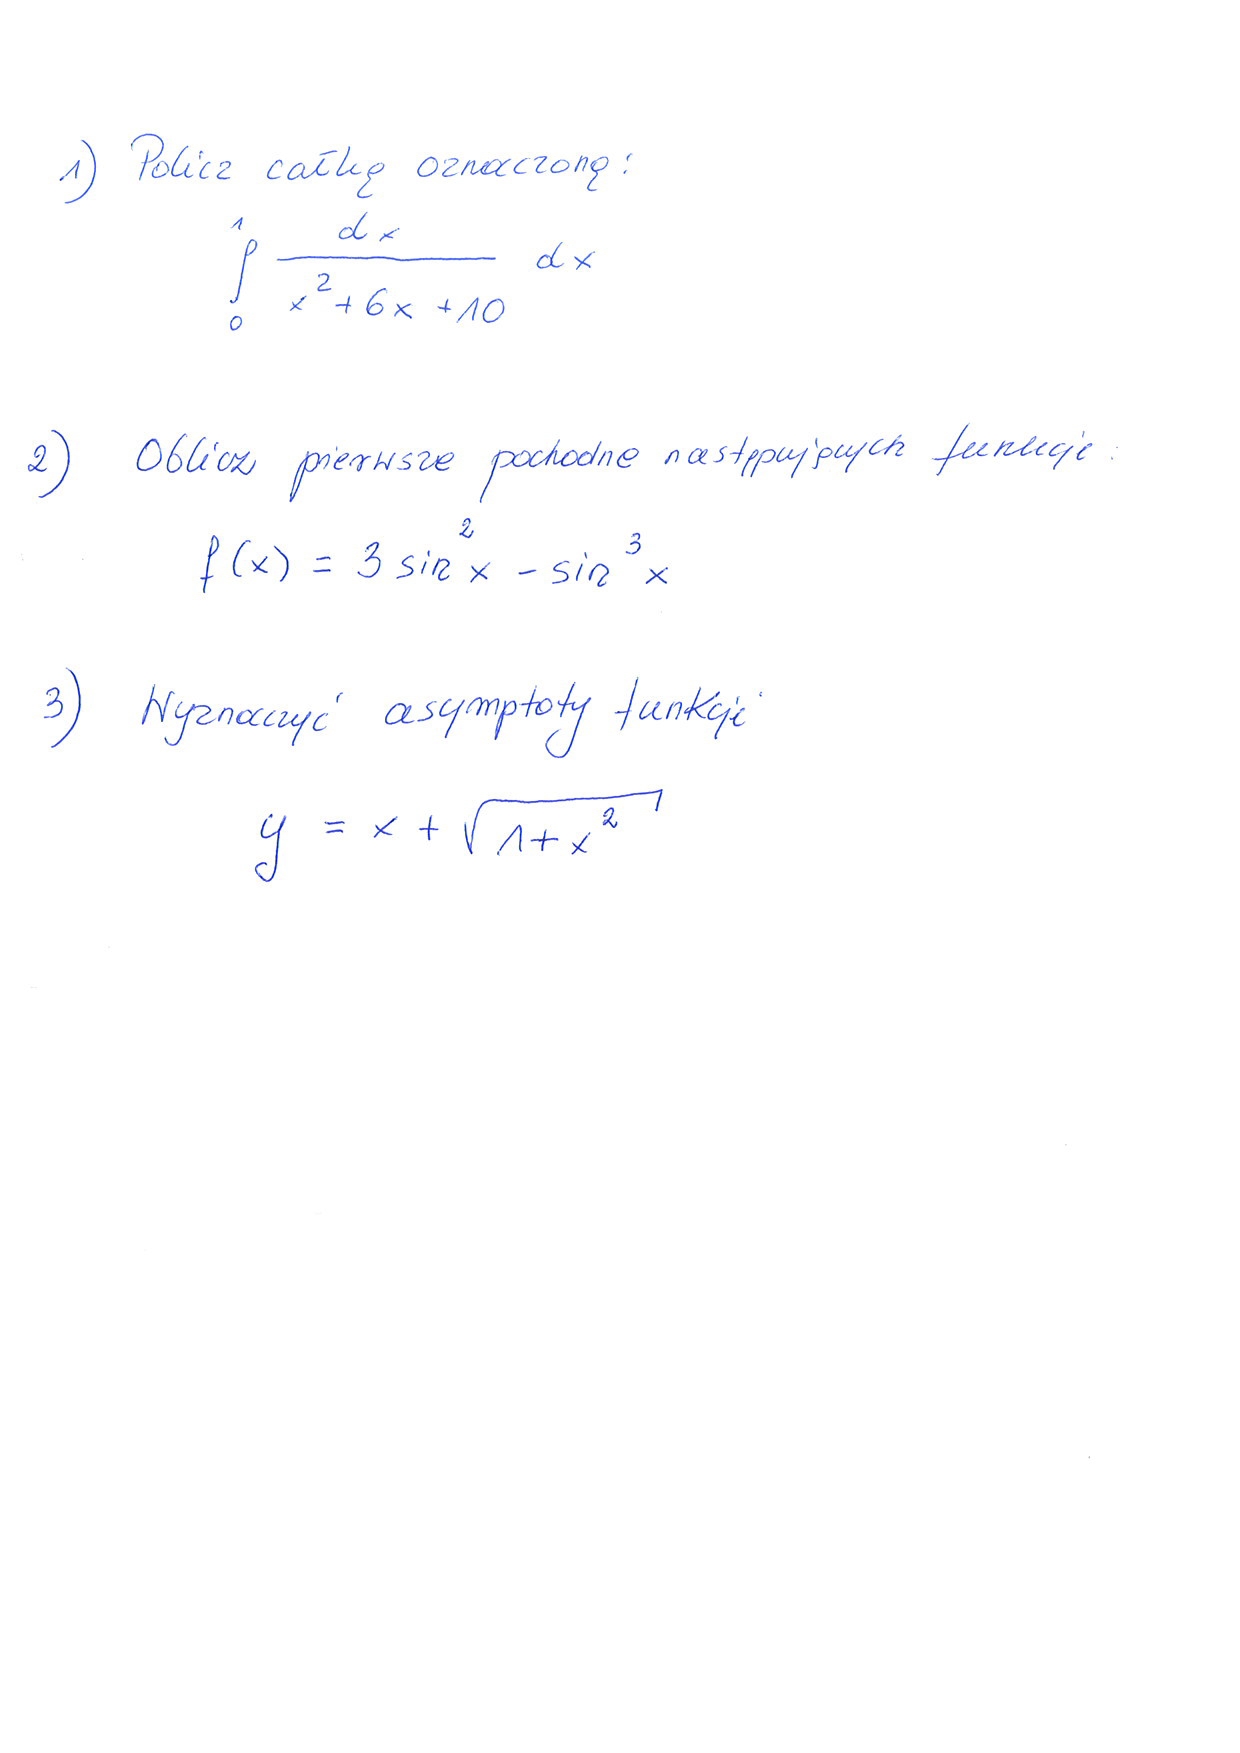 1) Policz całkę oznaczoną:
∫₀¹ dx / (x² + 6x + 10) dx
2) Oblicz pierwsze pochodne następujących funkcji:
f(x) = 3 sin² x - sin³ x
3) Wyznaczyć asymptoty funkcji
y = x + √(1 + x²)